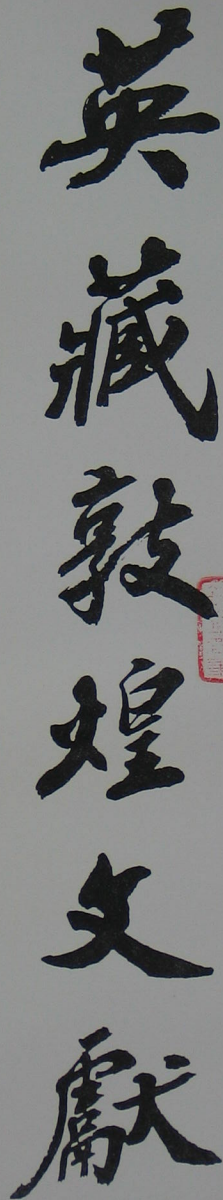 英藏敦煌文獻